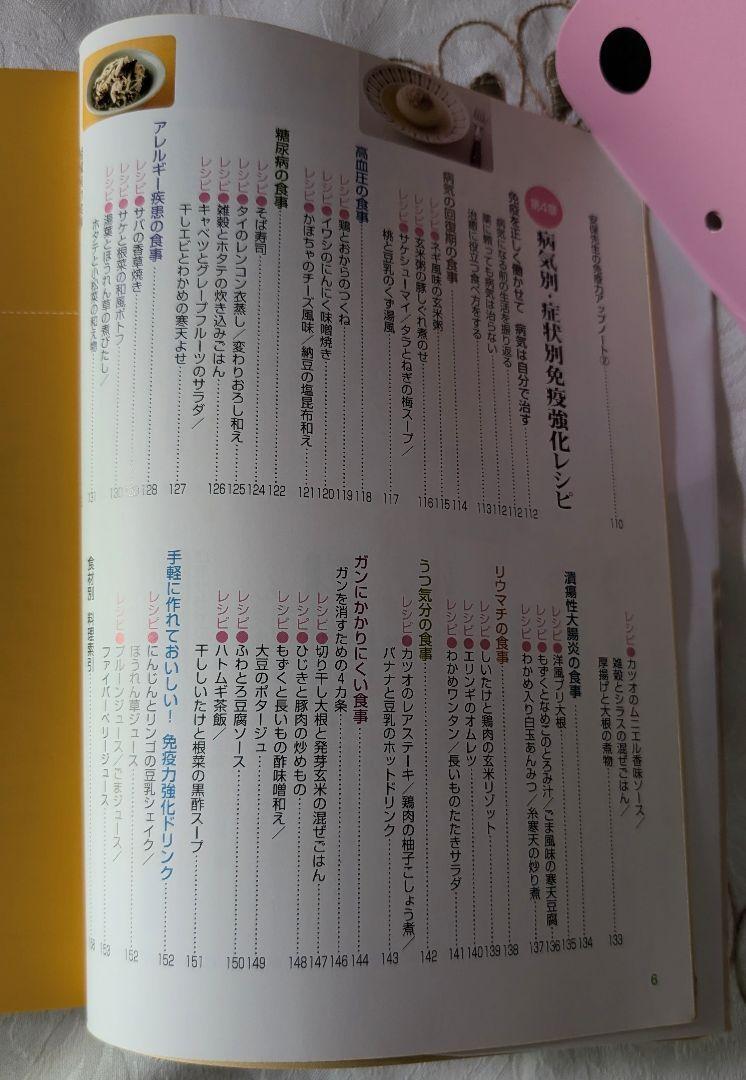 安保先生の免疫力アップノート② 110
第4章 病気別・症状別免疫強化レシピ
免疫を正しく働かせて 病気は自分で治す 112
病気になる前の生活を振り返る 112
薬に頼っても病気は治らない 112
治癒に役立つ食べ方をする 113
病気の回復期の食事 114
レシピ●ネギ風味の玄米粥 115
レシピ●玄米粥の豚しぐれ煮のせ 116
レシピ●サケシューマイ/タラとねぎの梅スープ/
桃と豆乳のくず湯風 117
高血圧の食事 118
レシピ●鶏とおからのつくね 119
レシピ●イワシのにんにく味噌焼き 120
レシピ●かぼちゃのチーズ風味/納豆の塩昆布和え 121
糖尿病の食事 122
レシピ●そば寿司 124
レシピ●タイのレンコン衣蒸し/変わりおろし和え 125
レシピ●雑穀とホタテの炊き込みごはん 126
レシピ●キャベツとグレープフルーツのサラダ/
干しエビとわかめの寒天よせ 127
アレルギー疾患の食事 128
レシピ●サバの香草焼き 129
レシピ●サケと根菜の和風ポトフ 130
レシピ●湯葉とほうれん草の煮びたし/
ホタテと小松菜の和え物 131
レシピ●カツオのムニエル香味ソース/
雑穀とシラスの混ぜごはん/
厚揚げと大根の煮物 133
潰瘍性大腸炎の食事 134
レシピ●洋風ブリ大根 135
レシピ●もずくとなめこのとろみ汁/ごま風味の寒天豆腐 136
レシピ●わかめ入り白玉あんみつ/糸寒天の炒り煮 137
リウマチの食事 138
レシピ●しいたけと鶏肉の玄米リゾット 139
レシピ●エリンギのオムレツ 140
レシピ●わかめワンタン/長いものたたきサラダ 141
うつ気分の食事 142
レシピ●カツオのレアステーキ/鶏肉の柚子こしょう煮/
バナナと豆乳のホットドリンク 143
ガンにかかりにくい食事 144
ガンを消すための4カ条 146
レシピ●切り干し大根と発芽玄米の混ぜごはん 147
レシピ●ひじきと豚肉の炒めもの 148
レシピ●もずくと長いもの酢味噌和え/
大豆のポタージュ 149
レシピ●ふわとろ豆腐ソース 150
レシピ●ハトムギ茶飯/
干ししいたけと根菜の黒酢スープ 151
手軽に作れておいしい! 免疫力強化ドリンク 152
レシピ●にんじんとリンゴの豆乳シェイク/
ほうれん草ジュース 152
レシピ●プルーンジュース/ごまジュース/
ファイバーベリージュース 153
食材別 料理索引 158
6